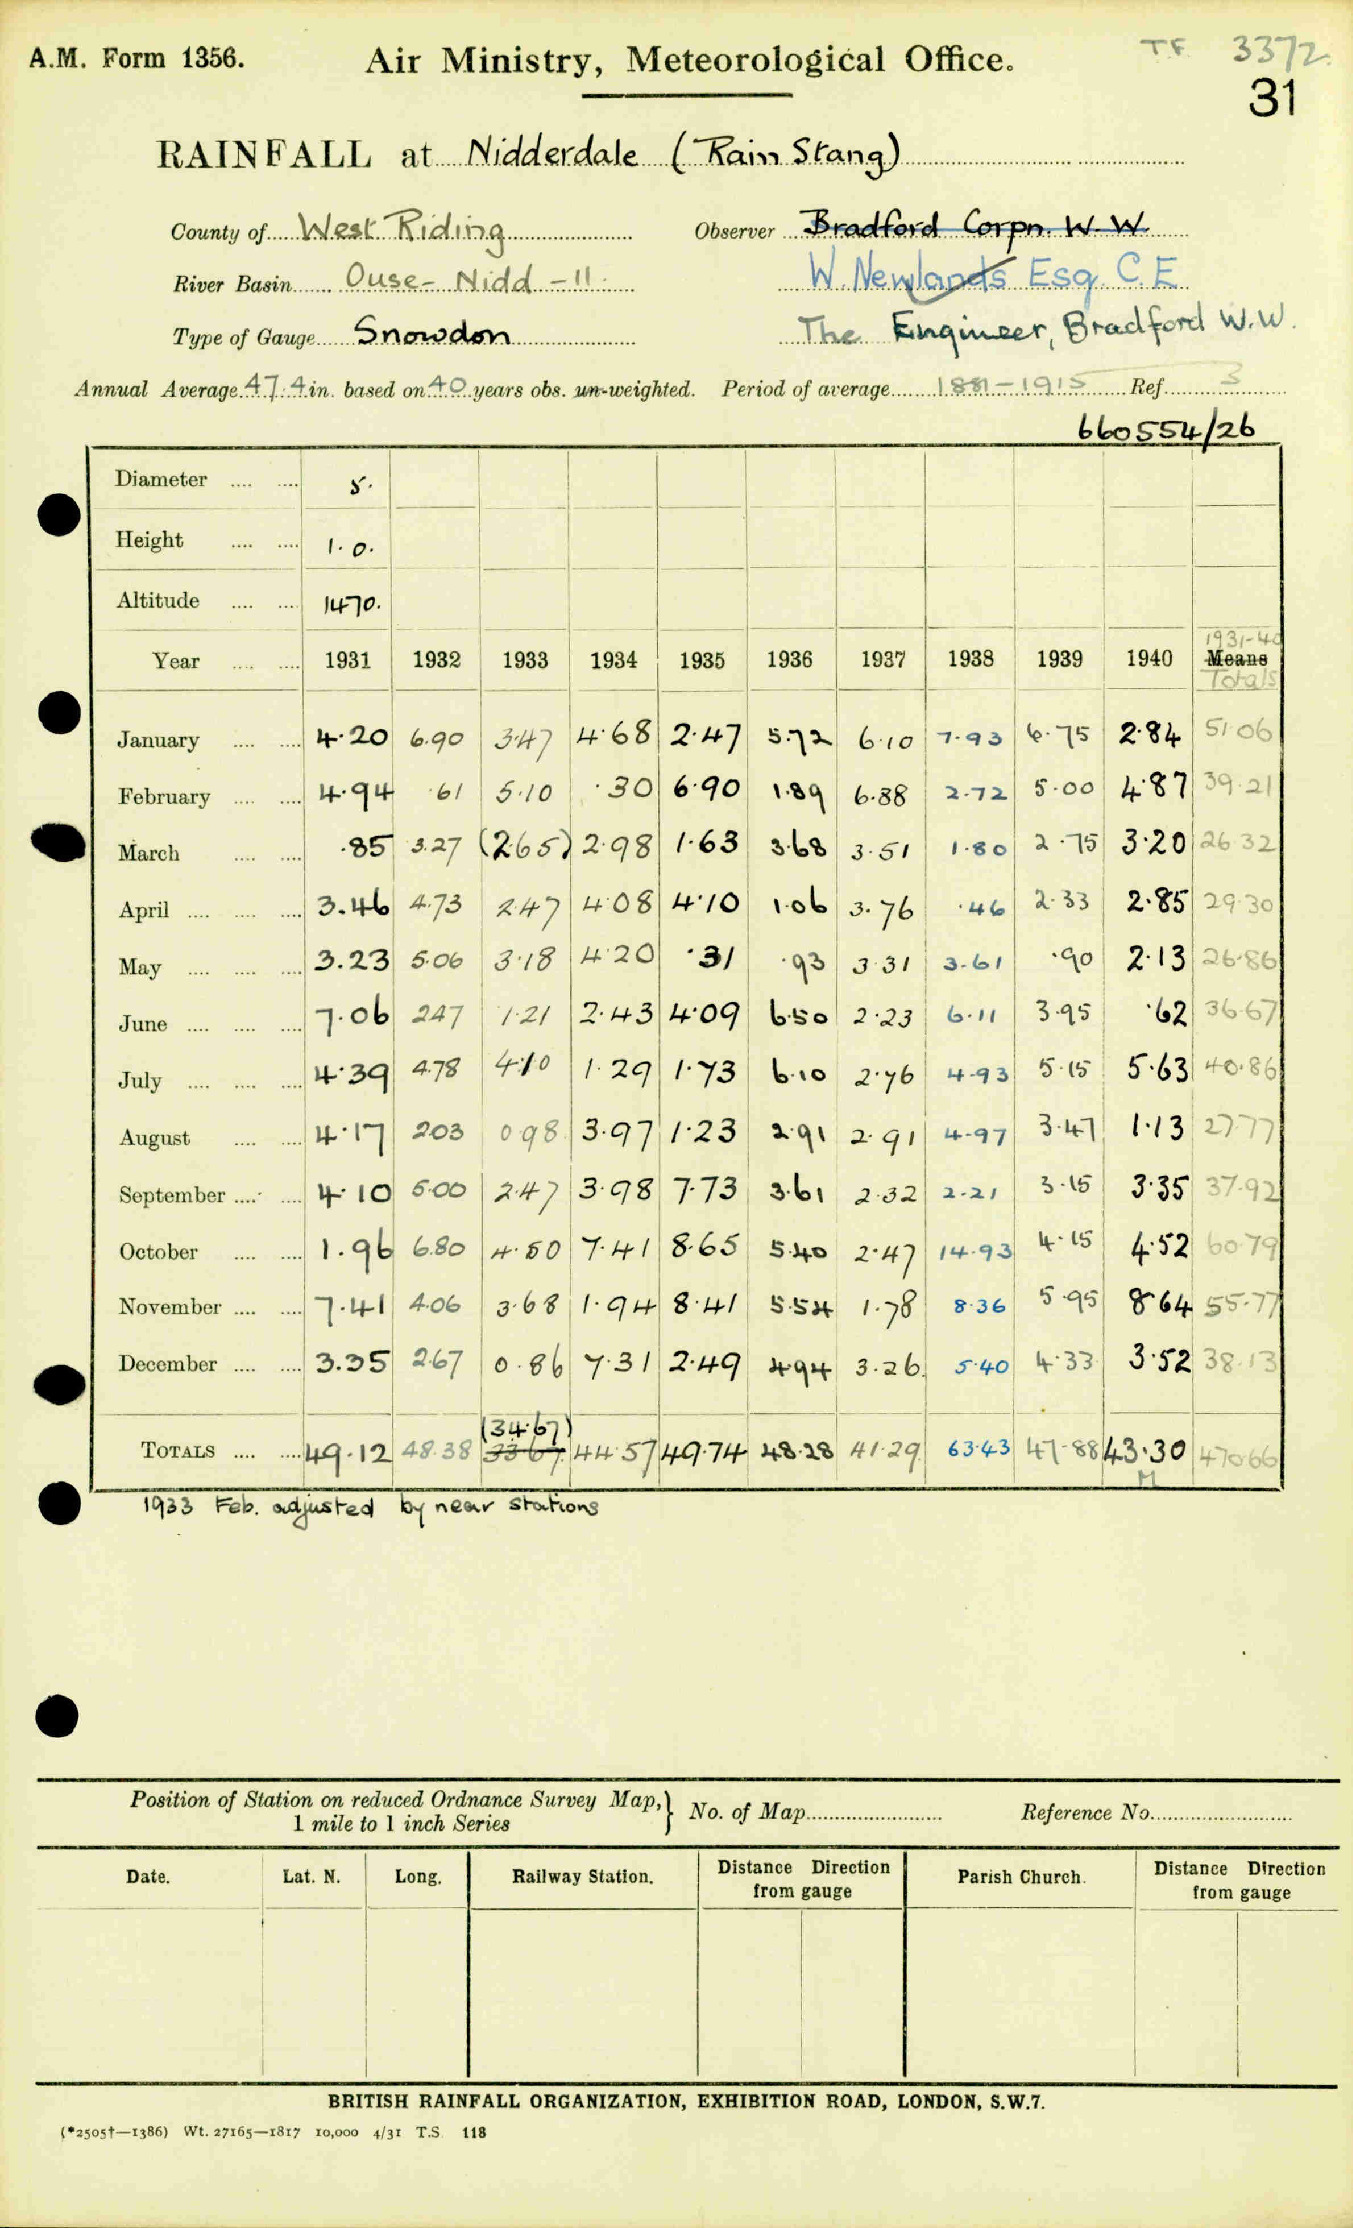 A.M. Form 1356. Air Ministry, Meteorological Office. T.F. 3372.
31
RAINFALL at Nidderdale (Rain Stang)
County of West Riding Observer Bradford Corpn. W. W.
River Basin Ouse - Nidd - 11. W. Newlands Esq. C.E.
Type of Gauge Snowdon The Engineer, Bradford W.W.
Annual Average 47.4 in. based on 40 years obs. un-weighted. Period of average 1881-1915 Ref. 3
660554/26
Diameter .... .... 5.
Height .... .... 1.0.
Altitude .... .... 1470.
1931-40
Year .... .... 1931 1932 1933 1934 1935 1936 1937 1938 1939 1940 Means
Totals
January .... .... 4.20 6.90 3.47 4.68 2.47 5.72 6.10 7.93 6.75 2.84 51.06
February .... .... 4.94 .61 5.10 .30 6.90 1.89 6.88 2.72 5.00 4.87 39.21
March .... .... .85 3.27 (2.65) 2.98 1.63 3.68 3.51 1.80 2.75 3.20 26.32
April .... .... .... 3.46 4.73 2.47 4.08 4.10 1.06 3.76 .46 2.33 2.85 29.30
May .... .... .... 3.23 5.06 3.18 4.20 .31 .93 3.31 3.61 .90 2.13 26.86
June .... .... .... 7.06 2.47 1.21 2.43 4.09 6.50 2.23 6.11 3.95 .62 36.67
July .... .... .... 4.39 4.78 4.10 1.29 1.73 6.10 2.76 4.93 5.15 5.63 40.86
August .... .... 4.17 2.03 0.98 3.97 1.23 2.91 2.91 4.97 3.47 1.13 27.77
September .... .... 4.10 5.00 2.47 3.98 7.73 3.61 2.32 2.21 3.15 3.35 37.92
October .... .... 1.96 6.80 4.50 7.41 8.65 5.40 2.47 14.93 4.15 4.52 60.79
November .... .... 7.41 4.06 3.68 1.94 8.41 5.54 1.78 8.36 5.95 8.64 55.77
December .... .... 3.35 2.67 0.86 7.31 2.49 4.94 3.26 5.40 4.33 3.52 38.13
(34.67)
TOTALS .... .... 49.12 48.38 33.67 44.57 49.74 48.28 41.29 63.43 47.88 43.30 470.66
M
1933 Feb. adjusted by near stations
Position of Station on reduced Ordnance Survey Map,} No. of Map Reference No.
1 mile to 1 inch Series
Date. Lat. N. Long. Railway Station. Distance Direction from gauge Parish Church. Distance Direction from gauge
BRITISH RAINFALL ORGANIZATION, EXHIBITION ROAD, LONDON, S.W.7.
(*2505†—1386) Wt. 27165—1817 10,000 4/31 T.S. 118